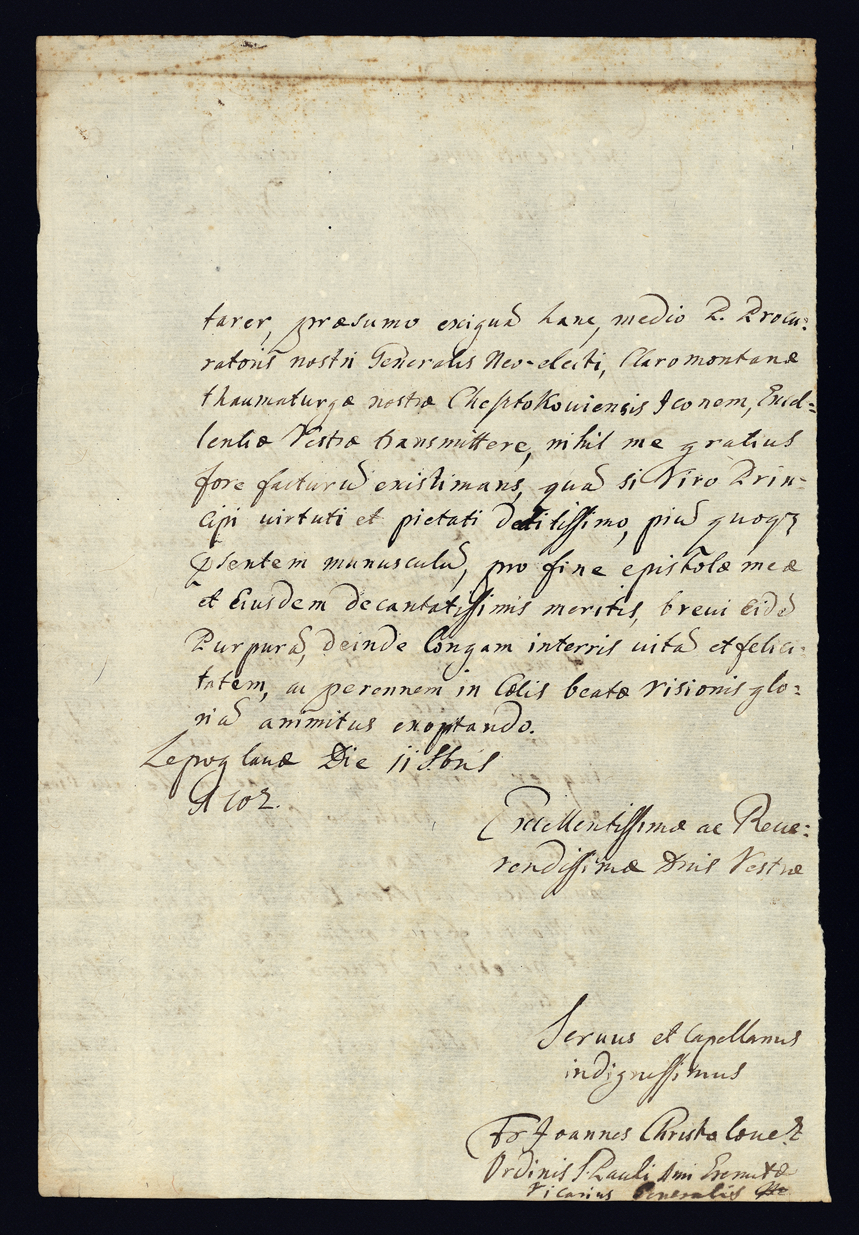 tarer, præsumo exiguā hanc, medio P. Procu:
ratoris nostri Generalis Neo-electi, Claromontanæ
thaumaturgæ nostræ Chestokoviensis Iconem, Excel=
lentiæ Vestræ transmittere, nihil me gratius
fore facturū existimans, quā si Viro Prin-
cipi virtuti et pietati deditissimo, piū quoqȝ
pſentem munusculū, pro fine epistolæ meæ
et Eiusdem decantatissimis meritis, brevi eidē
Purpurā, deinde longam in terris vitā et felici-
tatem, ac perennem in Cœlis beatæ visionis glo:
riā animitus exoptando.
Lepoglavæ Die 11
Excellentissimæ ac Reve:
rendissimæ Dnis Vestræ
Servus et Capellanus
indignissimus
Fr Joannes
Ordinis S. Pauli Imi Eremitæ
Vicarius Generalis